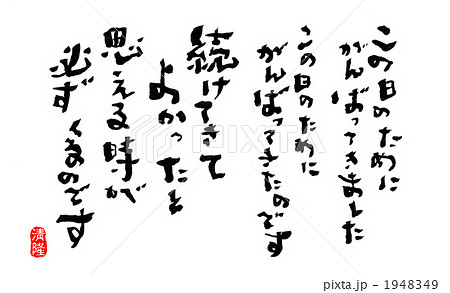 この日のために
がんばってきました
この日のために
がんばってきたのです
続けてきて
よかったと
思える時が
必ずくるのです
清隆
PIXTA
pixta.jp - 1948349